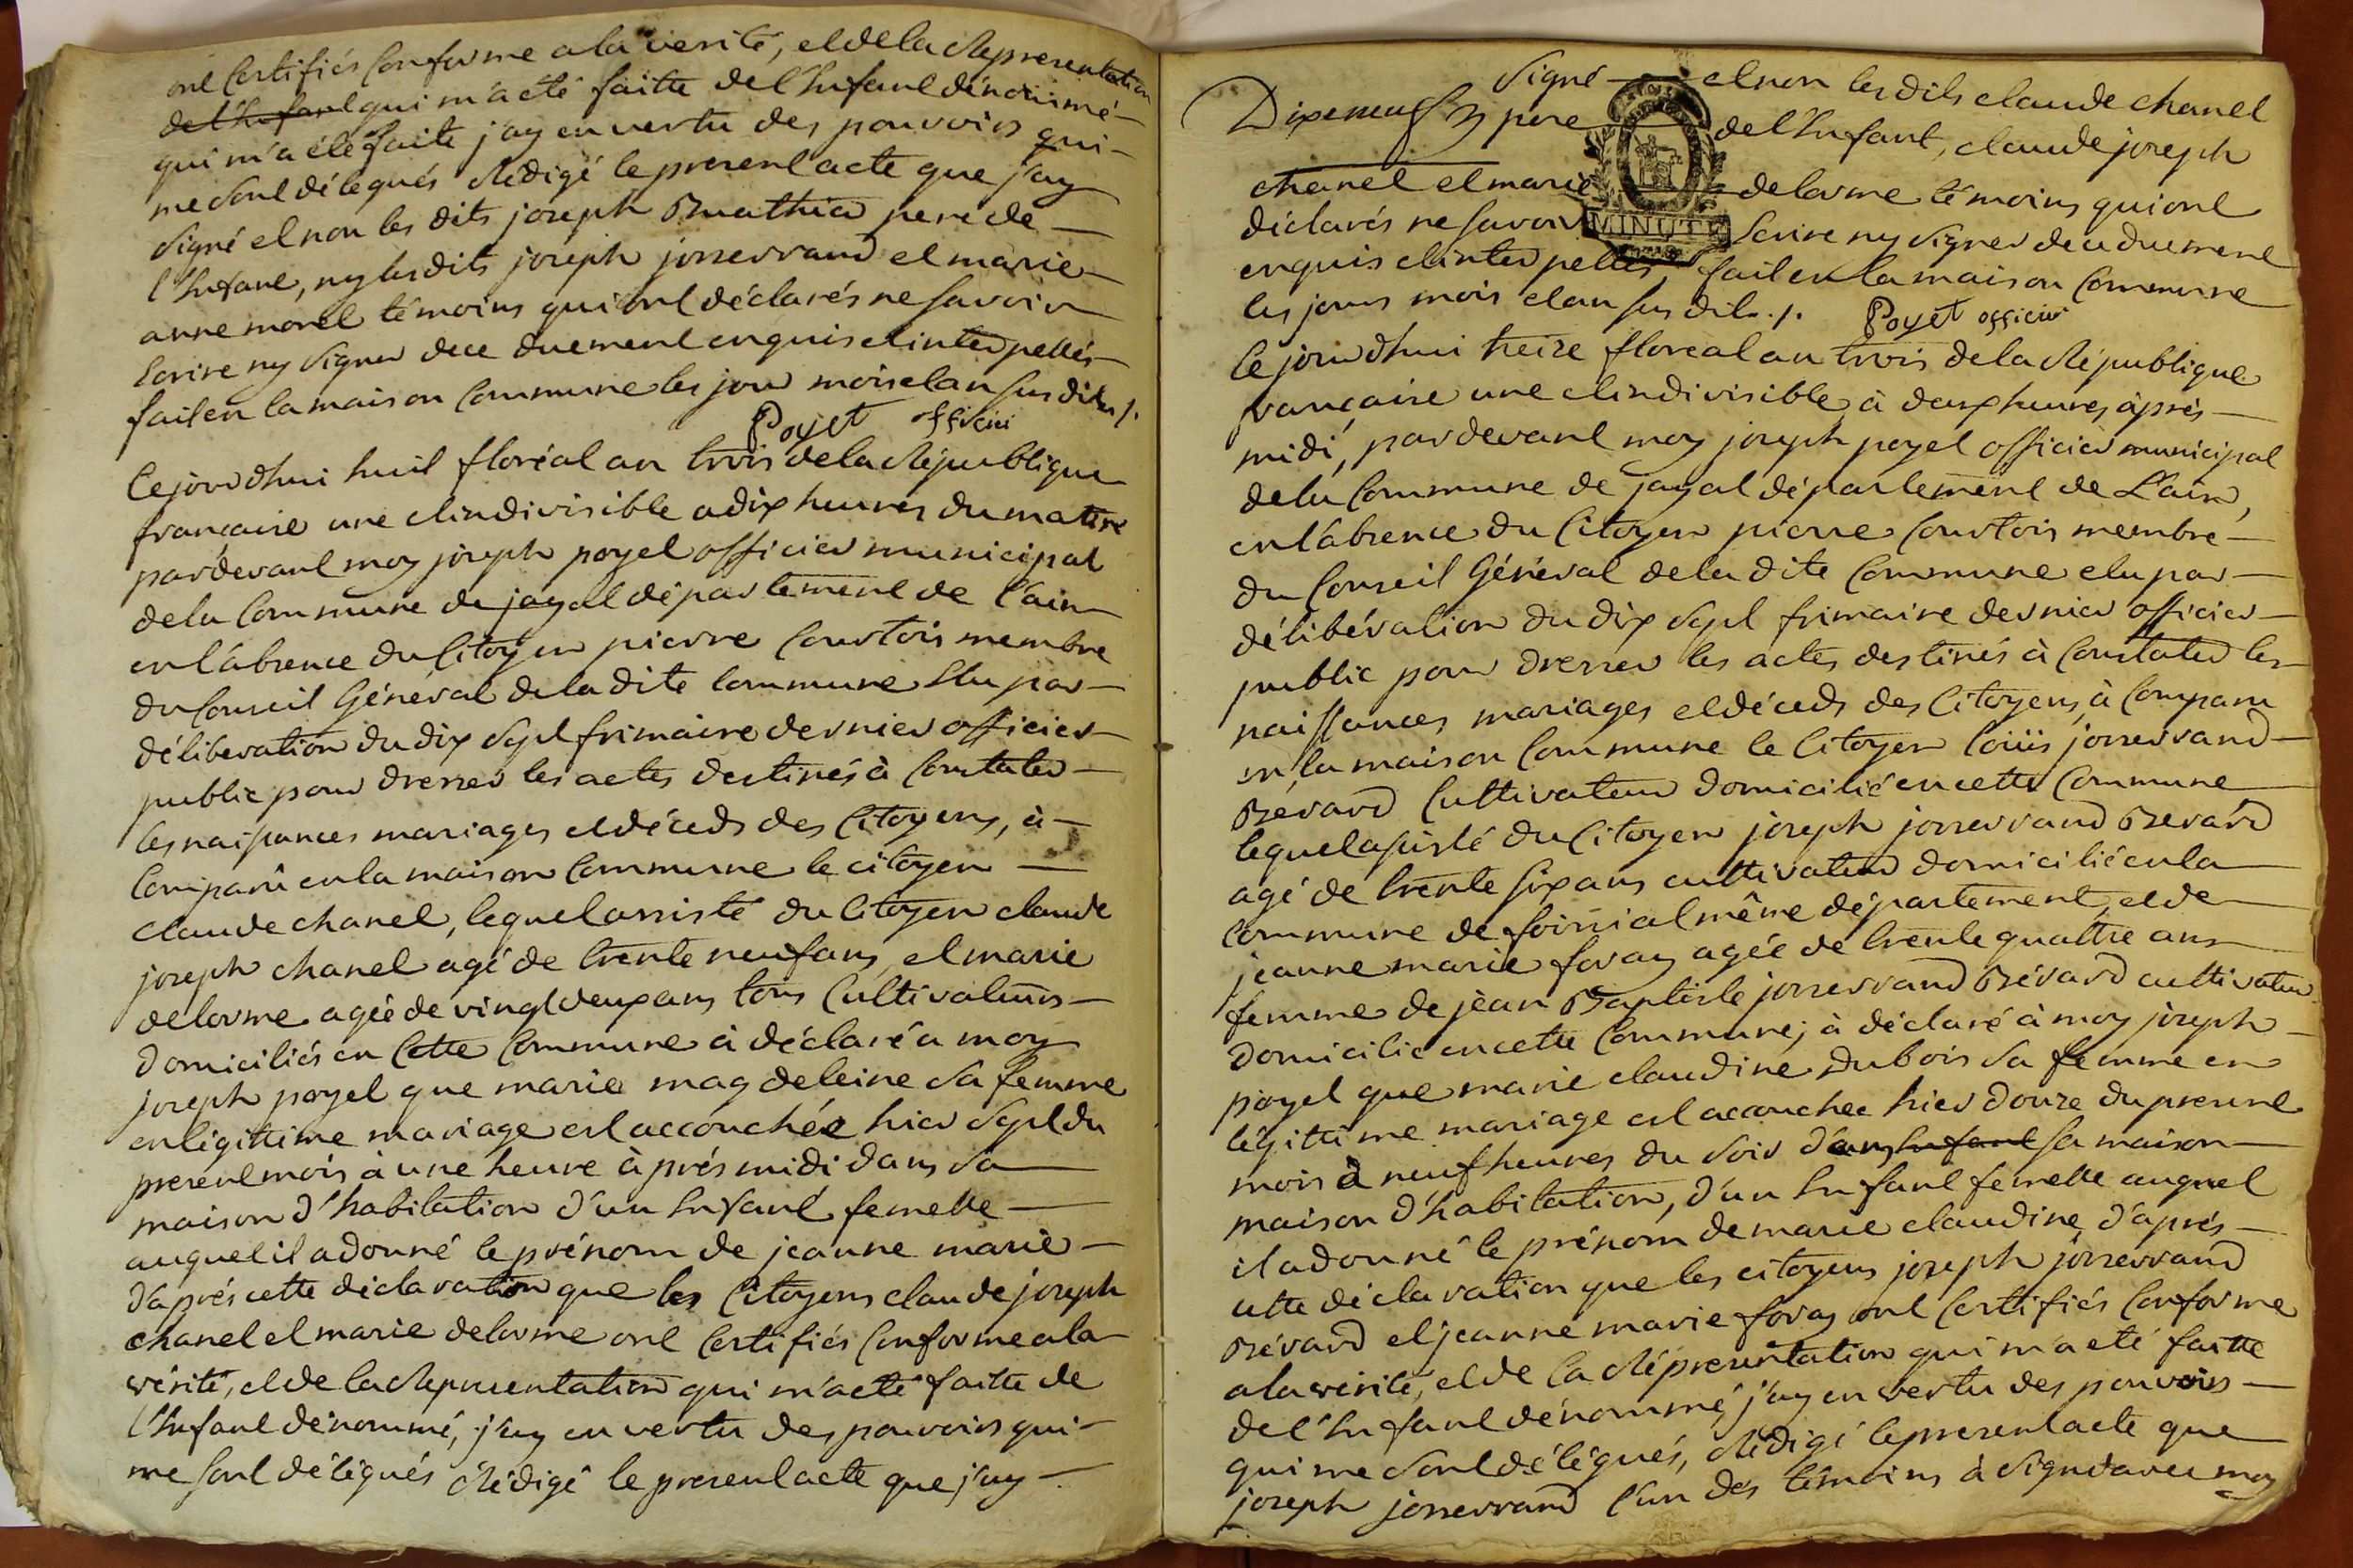 ont Certifiés Conforme a la verité, et de la Representation
de l'Enfant qui m'a eté faitte de l'Enfant dénommé
qui m'a eté faite j'ay en vertu des pouvoirs qui
me sont délegués Rédigé le present acte que j'ay
signé et non les dits joseph Buathier pere de
l'Enfant, ny les dits joseph josserrand et marie
anne morel témoins qui ont déclarés ne savoir
Ecrire ny signer de ce duement enquis et interpellés
fait en la maison Commune les jour mois et an sus dits ./.
Poyet officier
Cejourd'hui huit floréal an trois de la République
francaise une et indivisible a dix heures du matin
pardevant moy joseph poyet officier municipal
de la Commune de jayat département de l'ain
en l'absence du Citoyen pierre Courtois membre
du Conseil Général de la dite Commune Elu par
déliberation du dix sept frimaire dernier officier
public pour dresser les actes destinés à Constater
les naissances mariages et décéds des Citoyens, à
Comparû en la maison Commune le citoyen
claude chanel, lequel assisté du Citoyen claude
joseph chanel agé de trente neuf ans, et marie
delorme agée de vingt deux ans tous Cultivateurs
Domiciliés en Cette Commune à déclaré a moy
joseph poyet que marie magdeleine sa femme
en légittime mariage est accouchée hier sept du
present mois à une heure àprés midi dans sa
maison d'habitation d'un Enfant femelle
auquel il a donné le prénom de jeanne marie
d'aprés cette déclaration que les Citoyens claude joseph
chanel et marie delorme ont Certifiés Conforme a la
vérité, et de la Representation qui m'a eté faitte de
l'Enfant dénommé, j'ay en vertu des pouvoirs qui
me sont délégués Rédigé le present acte que j'ay
signé et non les dits claude chanel
Dixeneuf pere de l'Enfant, claude joseph
chanel et marie delorme témoins qui ont
déclarés ne savoir Ecrire ny signer de ce duement
MINUTE
enquis et interpellés, fait en la maison Commune
les jours mois et an sus dits ./. Poyet officier
Cejourd'hui treize floreal an trois de la République
francaise une et indivisible à deux heures àprés
midi, pardevant moy joseph poyet officier municipal
de la Commune de jayat département de L'ain,
en l'absence du Citoyen pierre Courtois membre
du Conseil Général de la dite Commune elu par
délibération du dix sept frimaire dernier officier
public pour dresser les actes destinés à Constater les
naissances mariages et décéds des Citoyens, à Comparu
en la maison Commune le Citoyen Loüis josserrand
Bévard Cultivateur domicilié en cette Commune
lequel assisté du Citoyen joseph josserrand Bevard
agé de trente six ans cultivateur domicilié en la
Commune de foissiat même département, et de
jeanne marie foray agée de trente quattre ans
femme de jean Baptiste josserrand Bévard cultivateur
domicilié en cette Commune, à déclaré à moy joseph
poyet que marie claudine Dubois sa femme en
légittime mariage est accouchée hier douze du present
mois à neuf heures du soir dans Enfant sa maison
maison d'habitation, d'un Enfant femelle auquel
il a donné le prénom de marie claudine d'aprés
cette déclaration que les citoyens joseph josserrand
Bévard et jeanne marie foray ont Certifiés Conforme
a la vérité, et de la Réprésentation qui m'a eté faitte
de l'Enfant dénommé, j'ay en vertu des pouvoirs
qui me sont délégués, Rédigé le present acte que
joseph josserrand l'un des témoins à signé avec moy